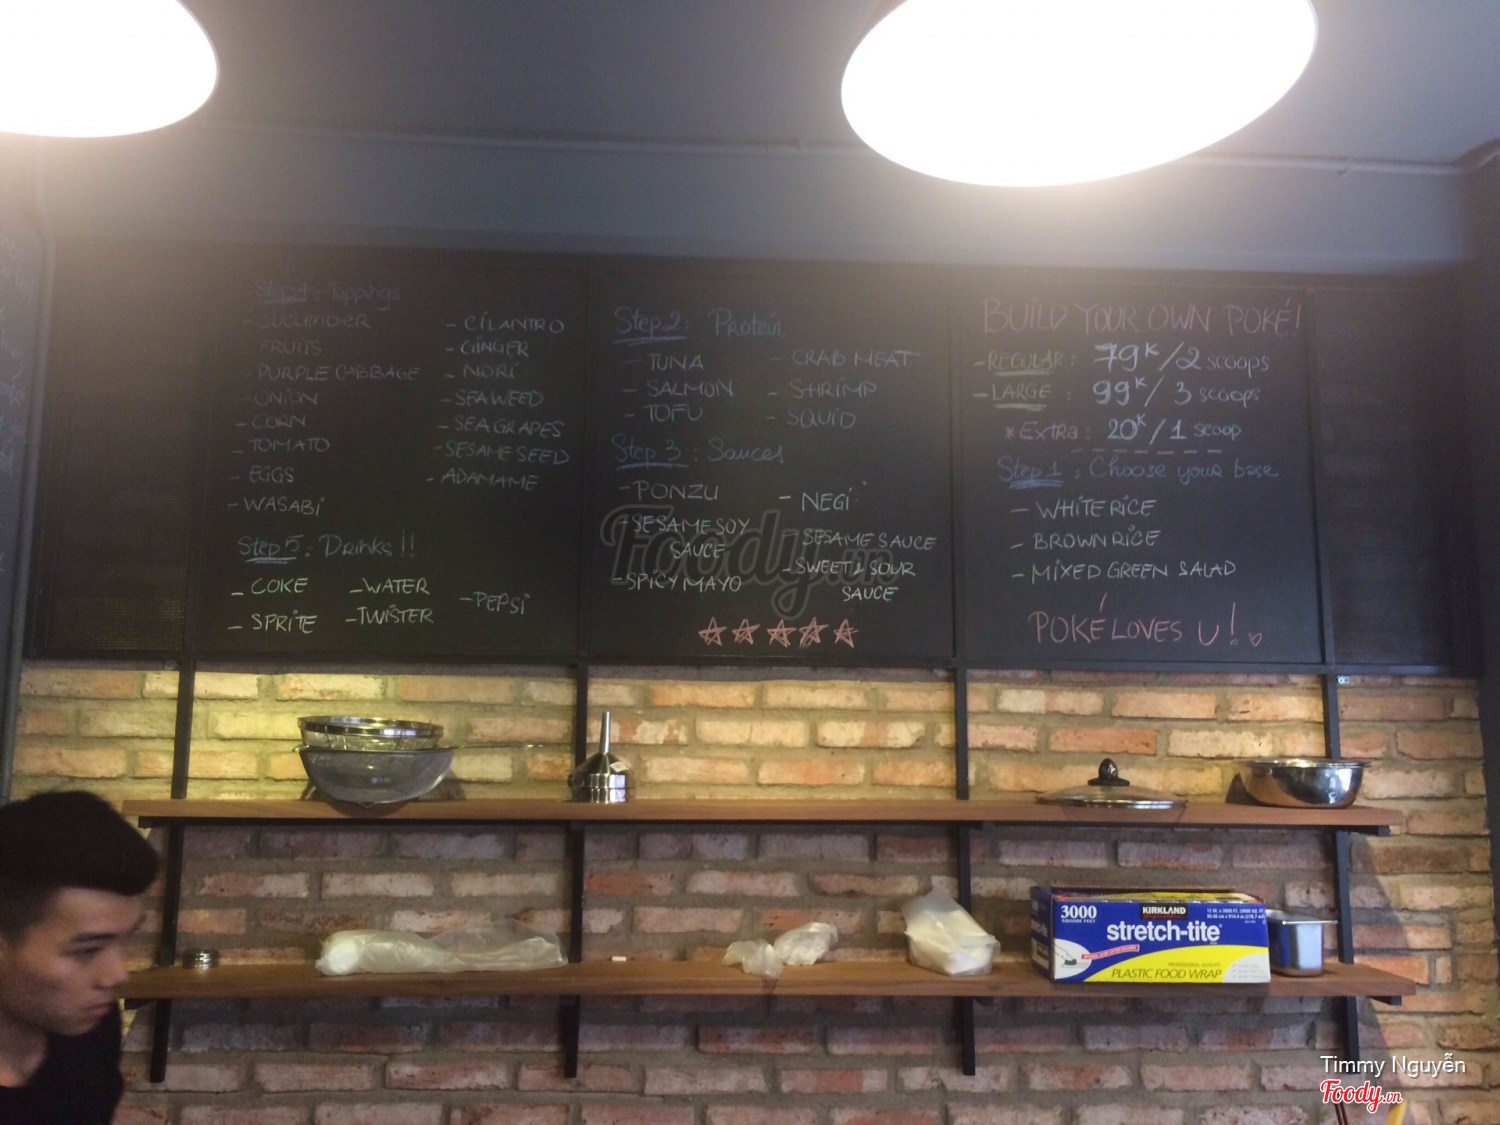 Step 4: Toppings
- CUCUMBER
FRUITS
- PURPLE CABBAGE
- ONION
- CORN
- TOMATO
- EGGS
- WASABI
- CILANTRO
- GINGER
- NORI
- SEAWEED
- SEAGRAPES
- SESAME SEED
- ADAMAME
Step 5: Drinks!!
- COKE
- SPRITE
- WATER
- TWISTER
- PEPSI
Step 2: Protein
- TUNA
- SALMON
- TOFU
- CRAB MEAT
- SHRIMP
- SQUID
Step 3: Sauces
- PONZU
- SESAME SOY
SAUCE
- SPICY MAYO
- NEGI
- SESAME SAUCE
- SWEET & SOUR
SAUCE
BUILD YOUR OWN POKÉ!
- REGULAR: 79K/2 SCOOPS
- LARGE: 99K/3 SCOOPS
* Extra: 20K/1 SCOOP
Step 1: Choose your base
- WHITE RICE
- BROWN RICE
- MIXED GREEN SALAD
POKÉ LOVES U!
Foody.vn
3000
SQUARE FEET
KIRKLAND
stretch-tite
PROFESSIONAL QUALITY
PLASTIC FOOD WRAP
Timmy Nguyễn
Foody.vn